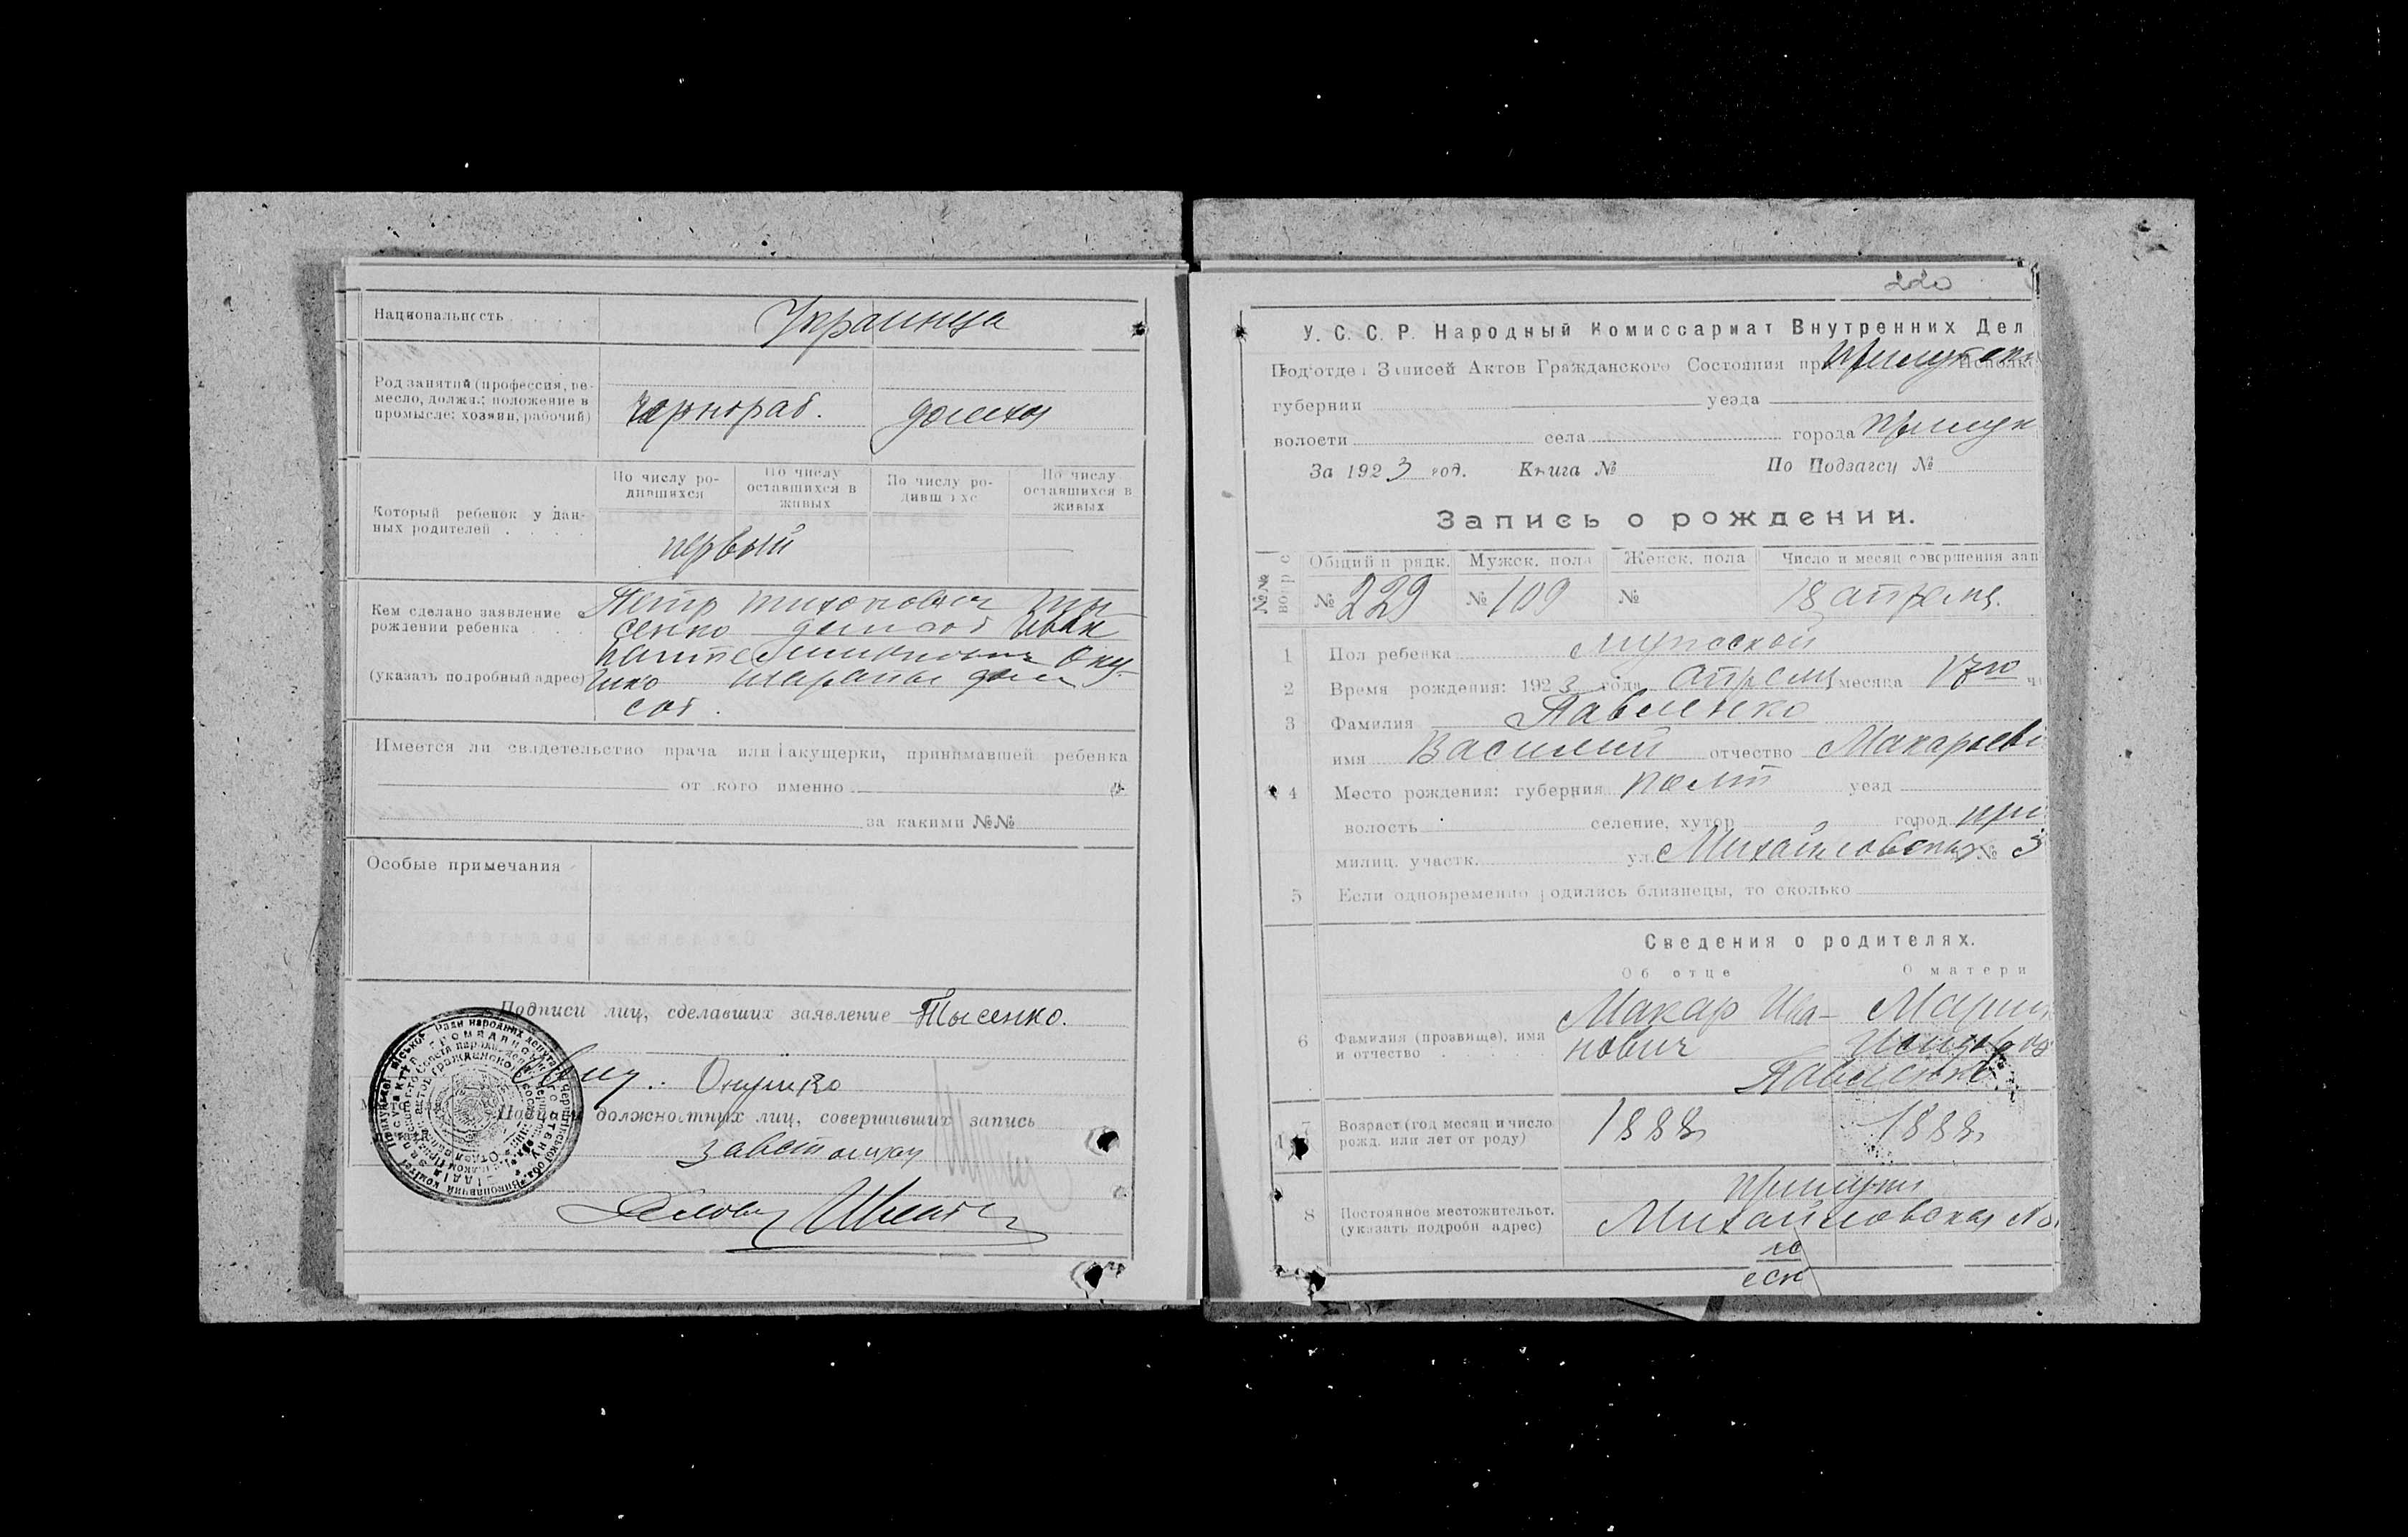 Национальность
Украинца
Род занятий (профессия, ре-
месло, должн.; положение в
промысле: хозяин, рабочий)
Чернораб.
домхоз
По числу ро-
дившихся
По числу
оставшихся в
живых
По числу ро-
дивш хс
По числу
оставшихся в
живых
Который ребенок у дан-
ных родителей
первый
Кем сделано заявление
рождении ребенка
(указать подробный адрес)
Петр Тихонович
сенко Иван
Пантелимонович Ону-
шко
соб.
Имеется ли свидетельство врача или акушерки, принимавшей ребенка
от кого именно
за какими №№
Особые примечания
Подписи лиц, сделавших заявление Тысенко.
Онушко
должностных лиц, совершивших запись
220
У. С. С. Р. Народный Комиссариат Внутренних Дел
Подотдел Записей Актов Гражданского Состояния при Исполк
губернии уезда
волости села города Прилук
За 1923 год. Книга № По Подзагсу №
Запись о рождении.
№№
Общий п рядк.
Мужск. пола
Женск. пола
Число и месяц совершения зап
№ 229
№ 109
№
18 апреля.
1 Пол ребенка мужской
2 Время рождения: 1923 года Апреля месяца 17го ч
3 Фамилия Павленко
имя Василий отчество Макарьеви
4 Место рождения: губерния Полт уезд
волость селение, хутор город При
милиц. участк. ул. Михайловская № 3
5 Если одновременно родились близнецы, то сколько
Сведения о родителях.
Об отце
О матери
6 Фамилия (прозвище), имя
и отчество
Макар Ива-
нович
Мария
Павленко
7 Возраст (год месяц и число
рожд. или лет от роду)
1888
1888
8 Постоянное местожительст.
(указать подробн адрес)
Прилуки
Михайловская №